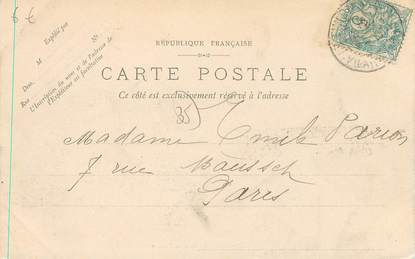 6 €
Expédié par
M
Dem. N°
Rue
L'Inscription du nom et de l'adresse de
l'Expéditeur est facultative
RÉPUBLIQUE FRANÇAISE
CARTE POSTALE
Ce côté est exclusivement réservé à l'adresse
35
Madame Emile Parion
7 rue
Paris